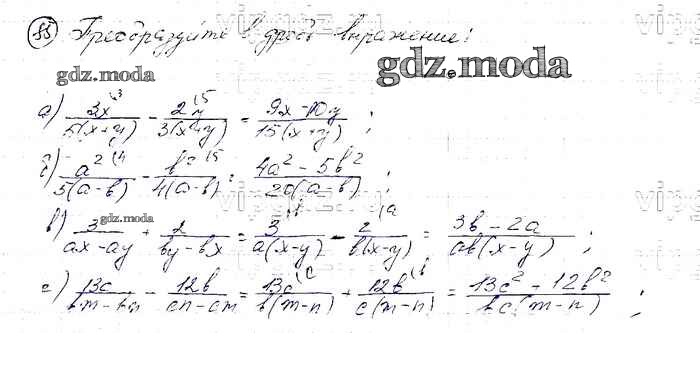 85 Преобразуйте в дробь выражение:
gdz.moda
gdz.moda
а) 3x/5(x+y) - 2y/3(x+y) = 9x-10y/15(x+y) ;
б) a²/5(a-b) - b²/4(a-b) = 4a²-5b²/20(a-b) ;
gdz.moda
в) 3/ax-ay + 2/by-bx = 3/a(x-y) - 2/b(x-y) = 3b-2a/ab(x-y) ;
г) 13c/bm-bn - 12b/cn-cm = 13c/b(m-n) + 12b/c(m-n) = 13c²-12b²/bc(m-n) ;